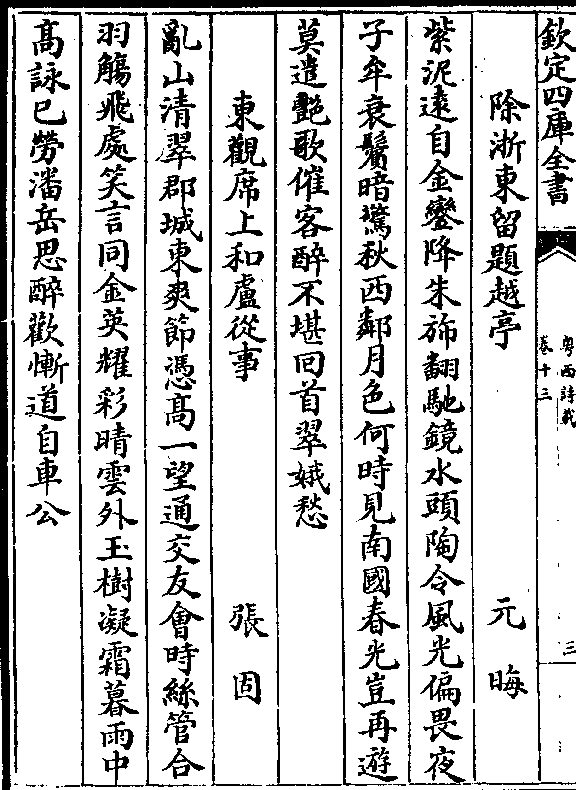 欽定四庫全書
粤西詩載
卷十三
三
除浙東留題越亭 元晦
紫泥遠自金鑾降朱旆翻馳鏡水頭陶令風光偏畏夜
子牟衰鬢暗驚秋西鄰月色何時見南國春光豈再遊
莫遣艷歌催客醉不堪回首翠娥愁
東觀席上和盧從事 張固
亂山清翠郡城東爽節憑高一望通交友會時絲管合
羽觴飛處笑言同金英耀彩晴雲外玉樹凝霜暮雨中
高詠已勞潘岳思醉歡慚道自車公